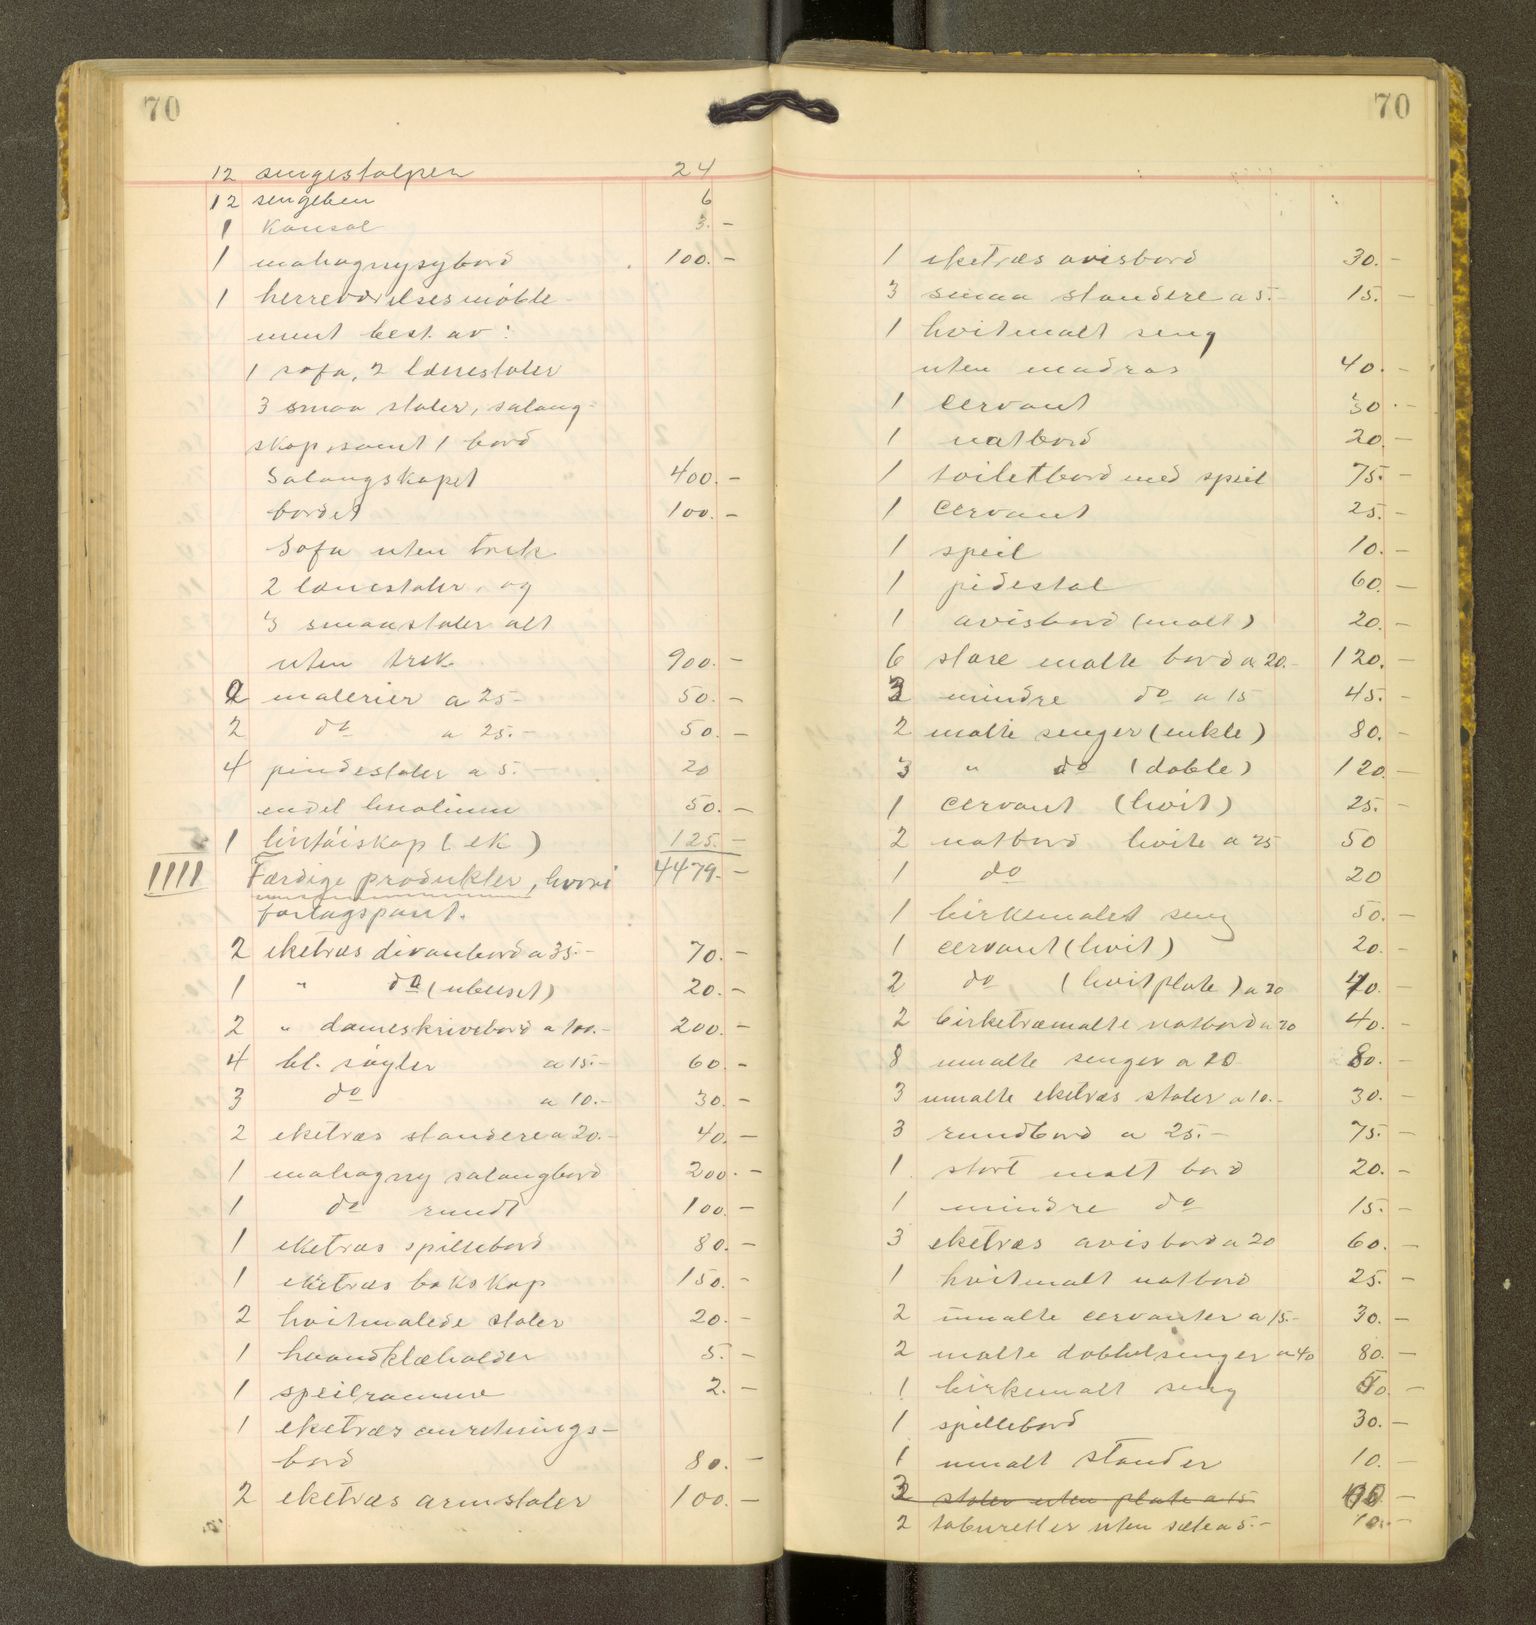 70
12 sengestolper 24
12 sengeben 6
1 Konsol 3.-
1 mahognysybord 100.-
1 herreværelsesmøble-
ment best. av:
1 sofa, 2 lænestoler
3 smaa stoler, salong-
skap, samt 1 bord
Salongskapet 400.-
bordet 100.-
Sofa uten træk
2 lænestoler, og
3 smaastoler alt
uten træk 900.-
2 malerier a 25- 50.-
2 do a 25.- 50.-
4 pindestoler a 5.- 20
endel linolium 50.-
1 lintøiskap (ek) 125.-
IIII Færdige produkter, hvori 4479.-
forlagspant.
2 eketræs divanbord a 35.- 70.-
1 " do (ubeiset) 20.-
2 " dameskrivebord a 100.- 200.-
4 bl. søyler a 15.- 60.-
3 do a 10.- 30.-
2 eketræs standere a 20.- 40.-
1 mahogny salongbord 200.-
1 do rundt 100.-
1 eketræs spillebord 80.-
1 eketræs bokskap 150.-
2 hvitmalede stoler 20.-
1 haandklæholder 5.-
1 speilramme 2.-
1 eketræs anretnings-
bord 80.-
2 eketræs armstoler 100.-
70
1 eketræs avisbord 30.-
3 smaa standere a 5.- 15.-
1 hvitmalt seng
uten madras 40.-
1 cervant 30.-
1 natbord 20.-
1 toiletbord med speil 75.-
1 cervant 25.-
1 speil 10.-
1 pidestal 60.-
1 avisbord (malt) 20.-
6 store malte bord a 20.- 120.-
3 mindre do a 15 45.-
2 malte senger (enkle) 80.-
3 " do (doble) 120.-
1 cervant (hvit) 25.-
2 natbord hvite a 25 50
1 do 20
1 birkemalet seng 50.-
1 cervant (hvit) 20.-
2 do (hvit plate) a 20 40.-
2 birketræmalte natbord a 20 40.-
8 umalte senger a 10 80.-
3 umalte eketræs stoler a 10.- 30.-
3 rundbord a 25.- 75.-
1 stort malt bord 20.-
1 mindre do 15.-
3 eketræs avisbord a 20 60.-
1 hvitmalt natbord 25.-
2 umalte cervanter a 15.- 30.-
2 malte dobbelsenger a 40 80.-
1 birkemalt seng 50.-
1 spillebord 30.-
1 umalt stander 10.-
3 stoler uten plate a 15 -
2 taburetter uten sæte a 5.- 10.-